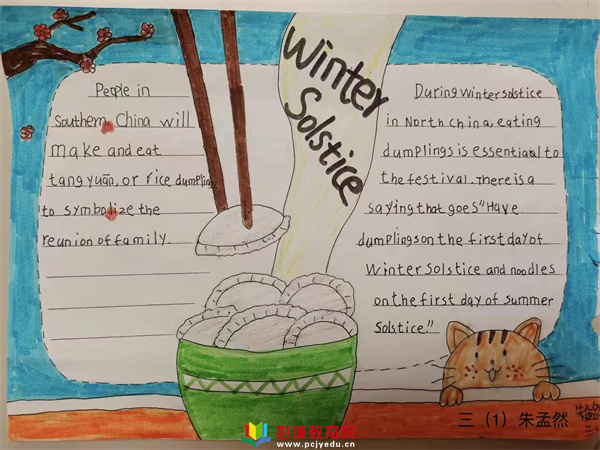 Winter
Solstice
People in
Southern China will
make and eat
tangyuan, or rice dumplings
to symbolize the
reunion of family.
During winter solstice
in North china, eating
dumplings is essentiaal to
the festival. There is a
saying that goes "Have
dumplings on the first day of
Winter Solstice and noodles
on the first day of summer
Solstice."
三 (1) 朱孟然
www.pcjyedu.cn